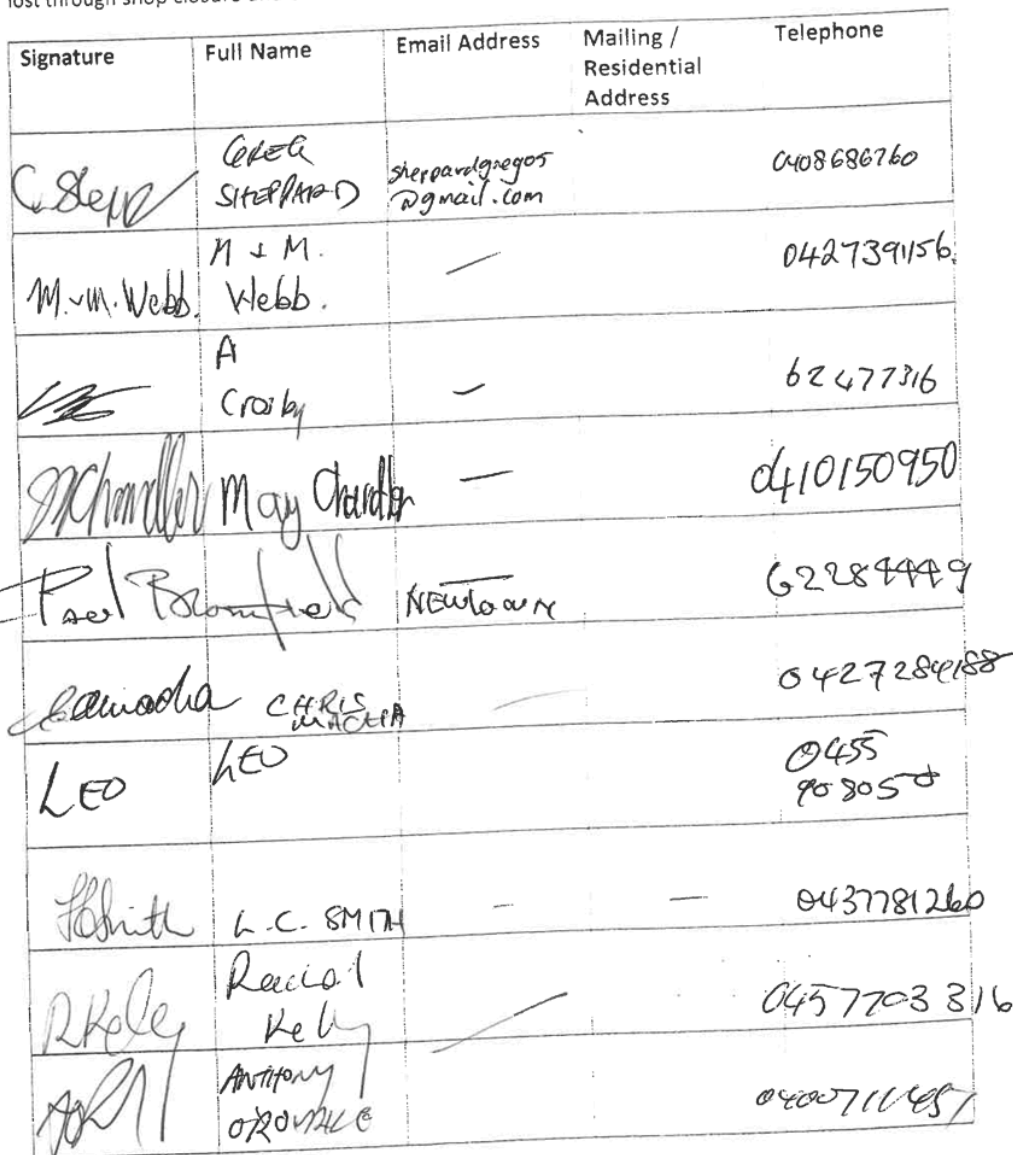 lost through shop closure
Signature Full Name Email Address Mailing / Residential Address Telephone
GREG
SHEPPARD
sheppardgreg05
@gmail.com
0408686760
M & M.
M.&M. Webb. Webb.
0427391156.
A
Crosby
62477316
MChandler May Chandler
0410150950
Paul Bromfield NEWTOWN
62284449
CHRIS
0427284188
LEO LEO
0455
908050
L.C. SMITH
0437781260
RKelly
Kelly
0457703316
ANTHONY